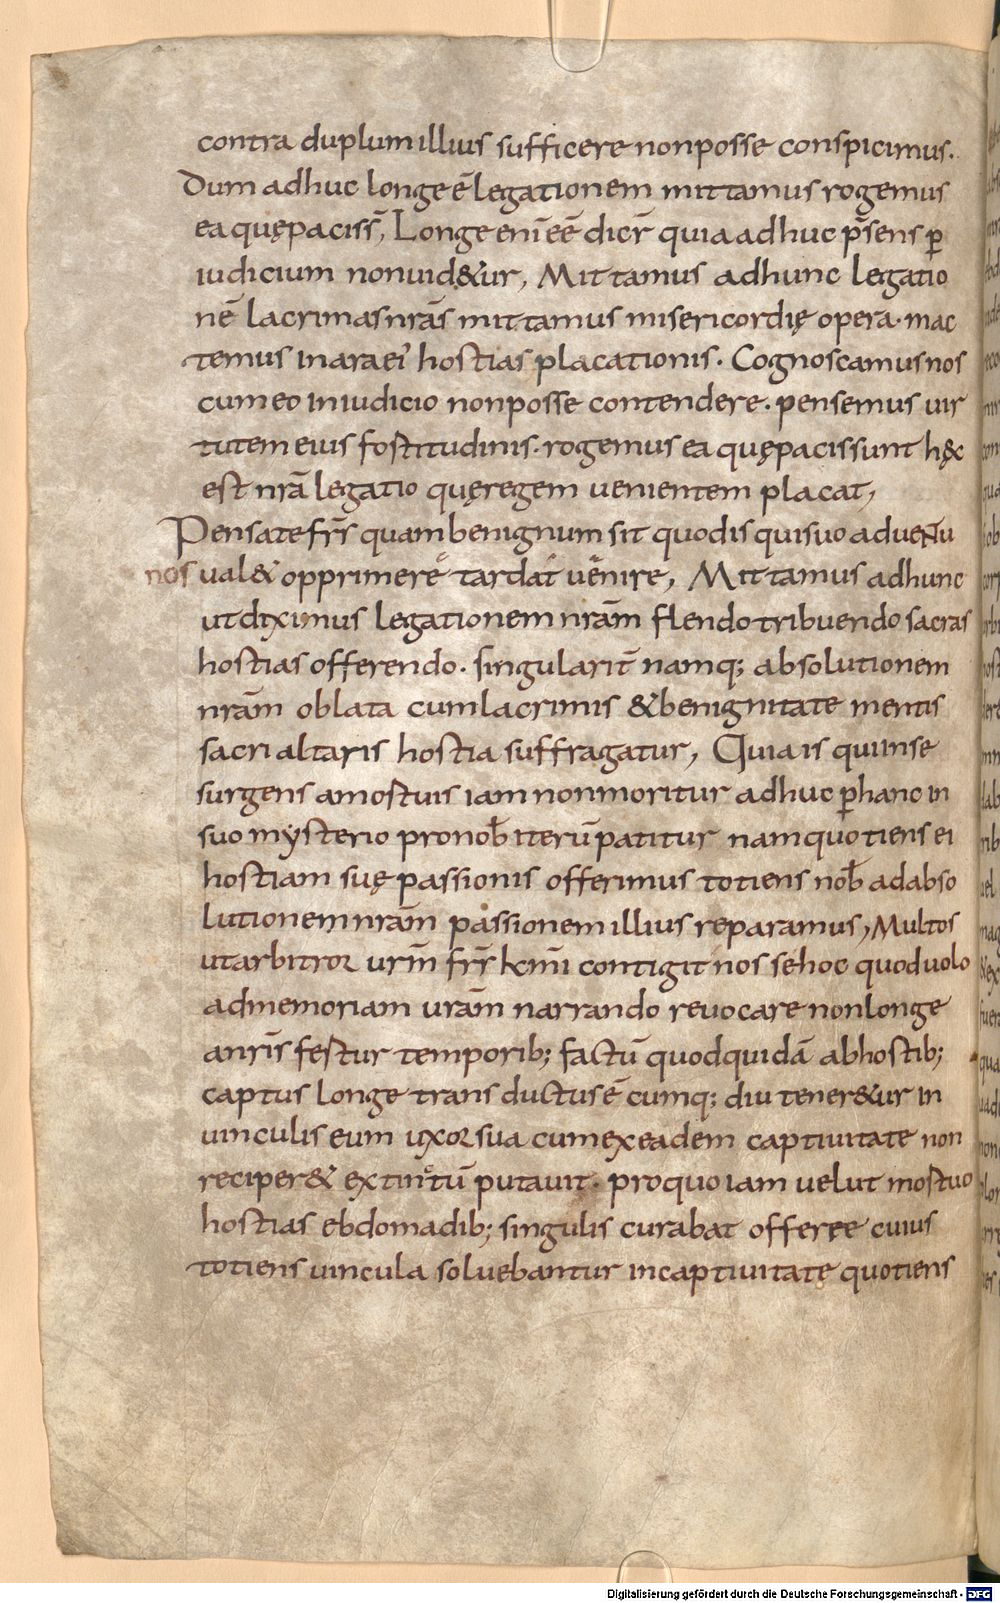 contra duplum illius sufficere nonposse conspicimus.
Dum adhuc longe ē legationem mittamus rogemus
ea quę pacis s̄, Longe enī eē dicr̄ quia adhuc p̄sens ꝑ
iudicium non uid&ur, Mittamus adhunc legatio
nē lacrimas nrās mittamus misericordię opera. mac
temus in ara ei' hostias placationis. Cognoscamus nos
cum eo in iudicio non posse contendere. pensemus uir
tutem eius fortitudinis. rogemus ea quę pacis sunt hęc
est nrā legatio quę regem uenientem placat,
Pensate frs̄ quam benignum sit quod is qui suo aduentu
nos ual& opprimere tardat uenire, Mittamus adhunc
ut diximus legationem nrām flendo tribuendo sacras
hostias offerendo. singularit̄ namq; absolutionem
nrām oblata cum lacrimis & benignitate mentis
sacri altaris hostia suffragatur, Quia is qui in se
surgens a mortuis iam non moritur adhuc ꝑ hanc in
suo mysterio pro nob̄ iterū patitur nam quotiens ei
hostiam suę passionis offerimus totiens nob̄ ad abso
lutionem nrām passionem illius reparamus, Multos
ut arbitror urm̄ frr̄ kmī contigit nosse hoc quod uolo
ad memoriam urām narrando reuocare non longe
a nrīs fertur temporib; factū quod quidā ab hostib;
captus longe transductus ē cumq; diu tener&ur in
uinculis eum uxor sua cum ex eadem captiuitate non
reciper& extinctū putauit. pro quo iam uelut mortuo
hostias ebdomadib; singulis curabat offerre cuius
totiens uincula soluebantur in captiuitate quotiens
Digitalisierung gefördert durch die Deutsche Forschungsgemeinschaft - DFG